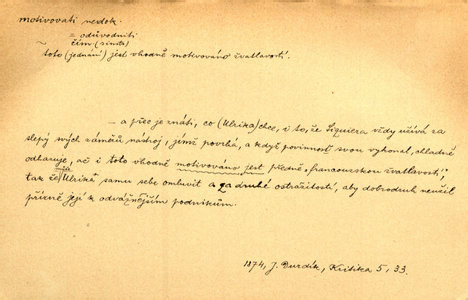 motivovati nedok.
= odůvodniti
~ čím (sinstr)
toto (jednání) jest vhodně motivováno žvatlavostí.
— a přec je znáti, co (Ulrika) chce, i to, že Siquiera vždy užívá za
slepý svých záměrů nástroj, jímž povrhá, a když povinnost svou vykonal, chladně
odbaruje, ač i toto vhodně motivováno jest předně „francouzskou žvatlavostí“,
tak že může Ulrika samu sebe omluviti a za druhé ostražitostí, aby dobrodruh neužil
přízně její k odvážnějším podnikům.
1874, J. Durdík, Kritika 5, 33.